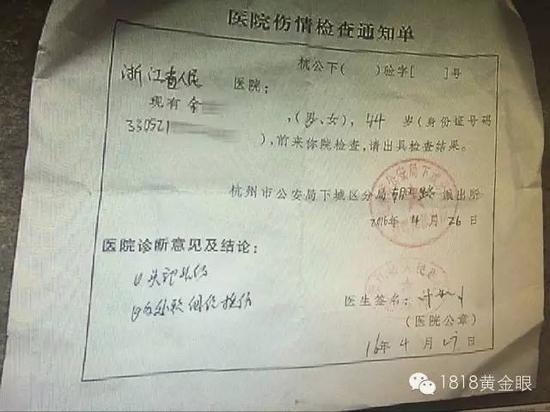 医院伤情检查通知单
杭公下( )验字[ ]号
浙江省人民医院:
现有余
330521
,(男、女), 44 岁(身份证号码
),前来你院检查,请出具检查结果。
杭州市公安局下城区分局朝晖路派出所
2016年4月26日
医院诊断意见及结论:
医生签名:
(医院公章)
16年4月27日
1818黄金眼